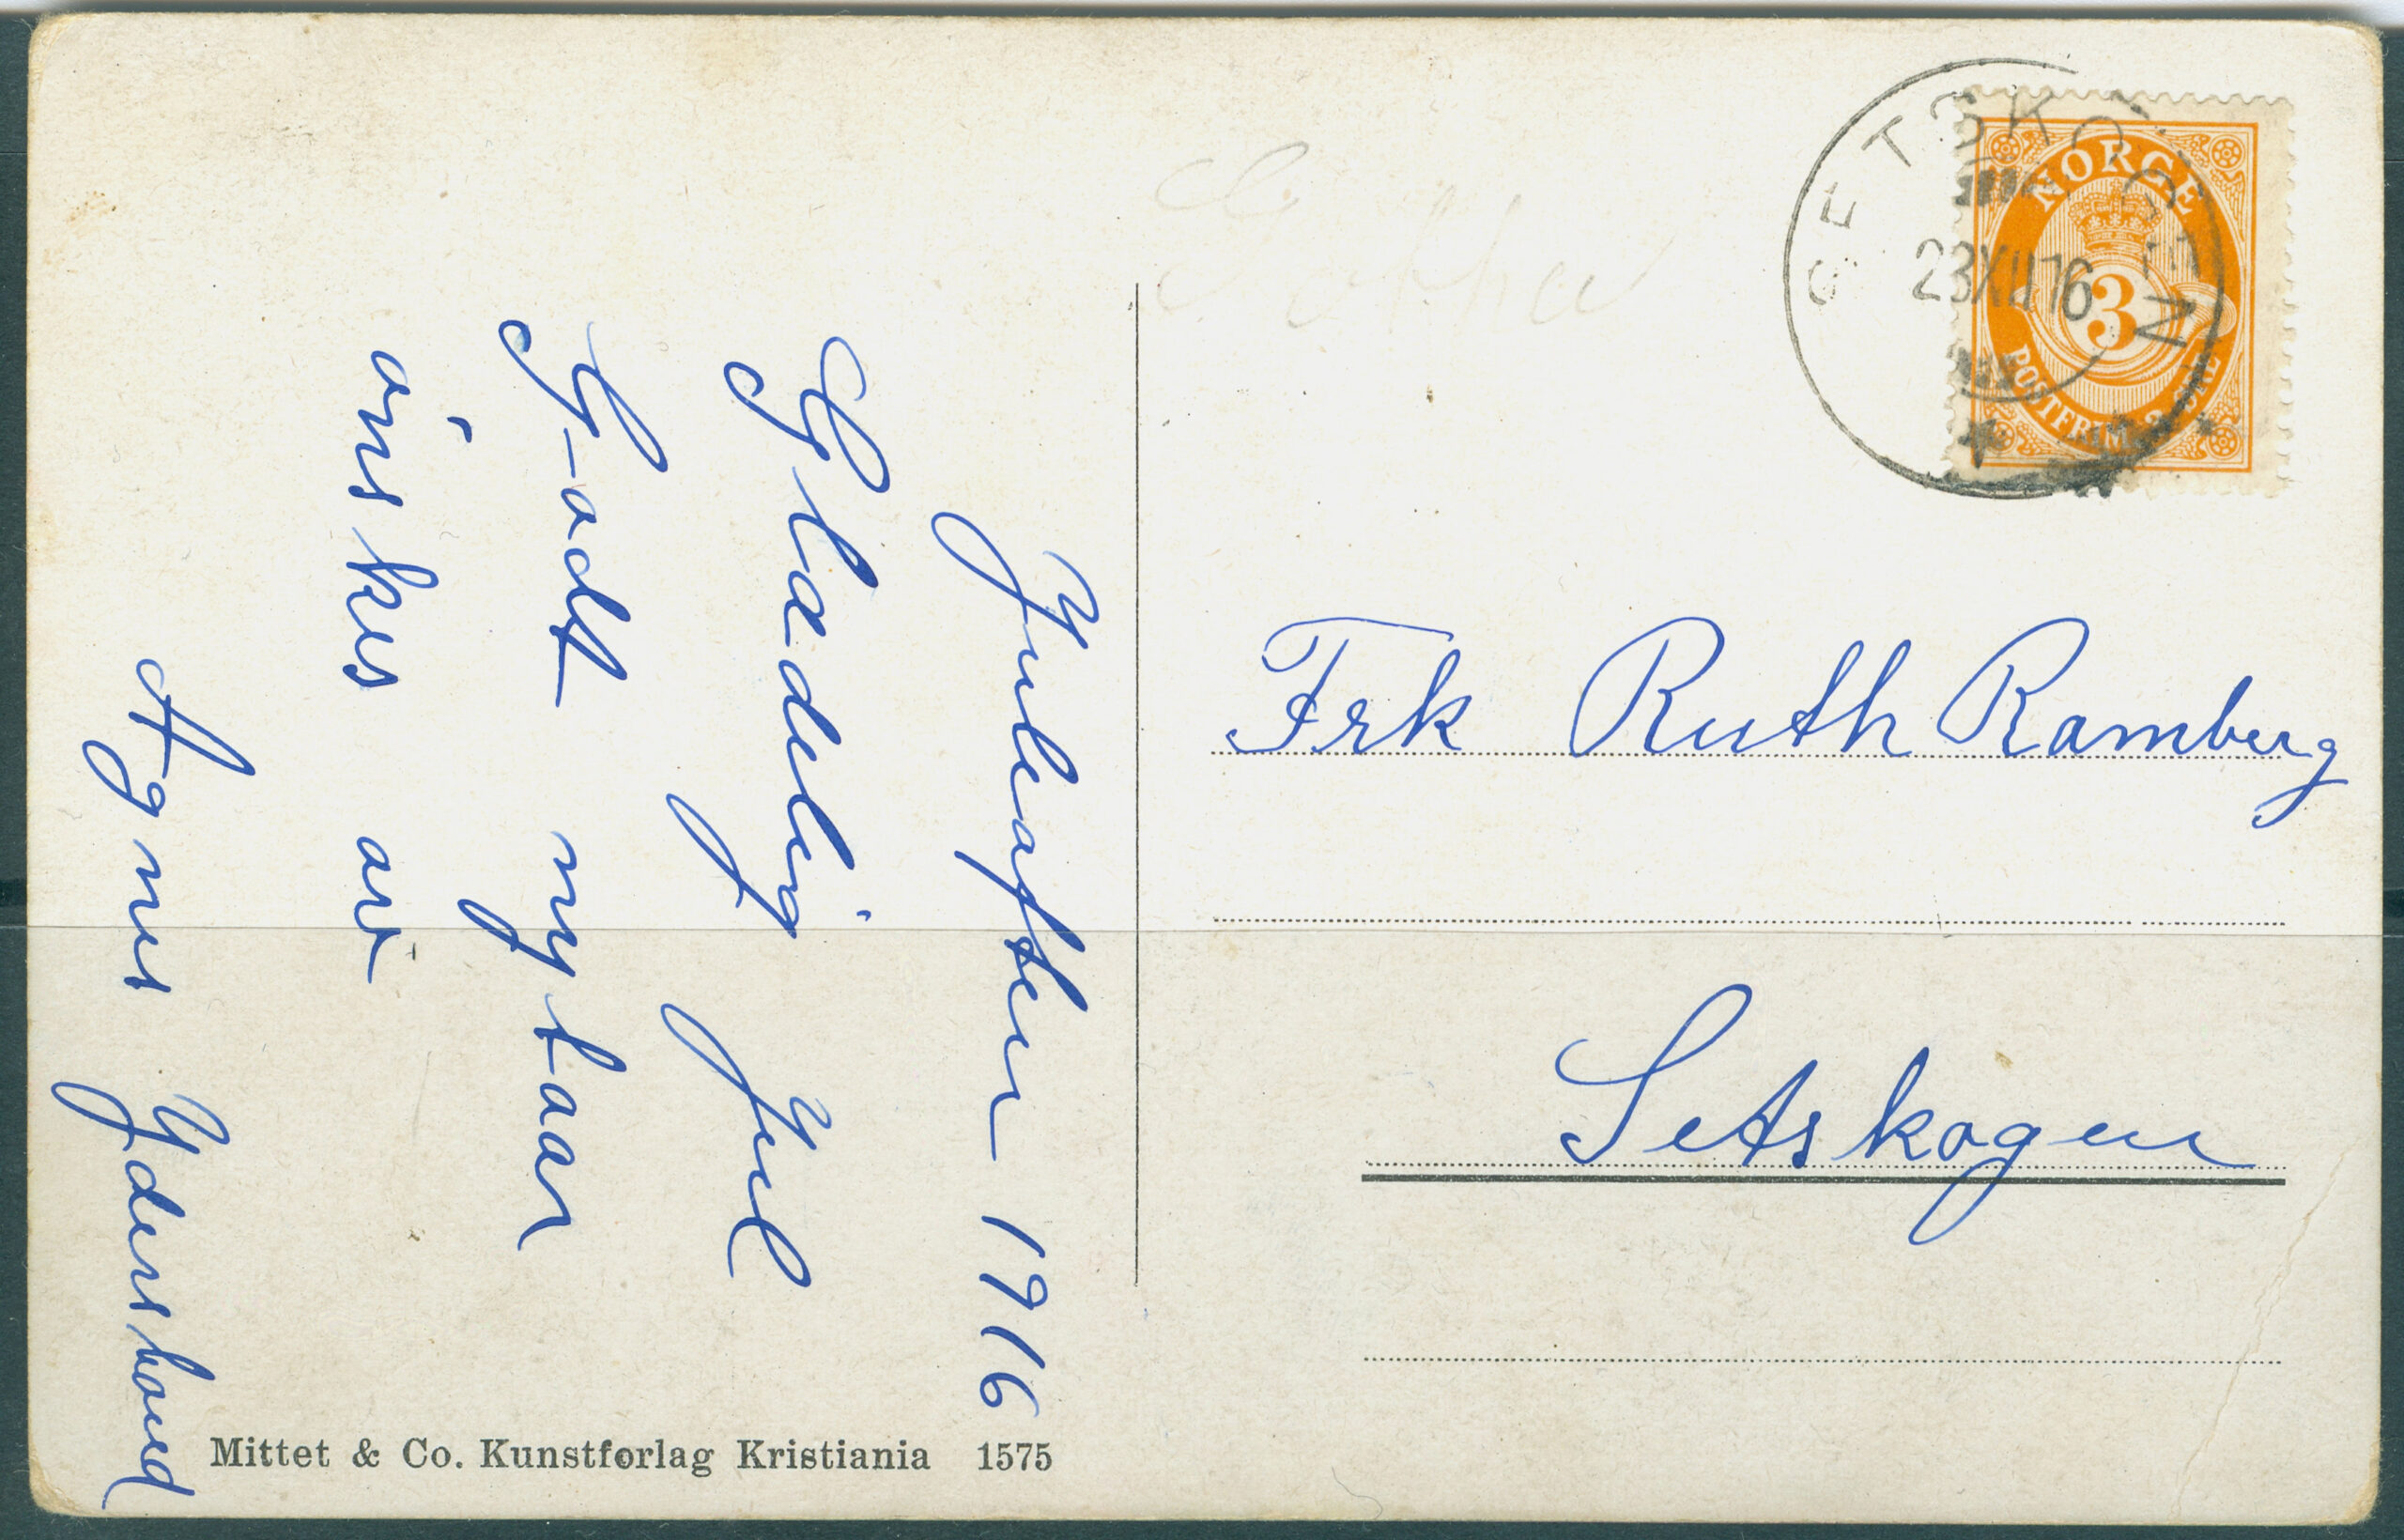 Juleaften 1916
Glædelig Jul
Godt nytaar
ønskes av
Agnes
Frk Ruth Ramberg
Setskogen
SETSKOGEN
23 XII 16
NORGE
3
POSTFRIM. 3 ØRE
Mittet & Co. Kunstforlag Kristiania 1575